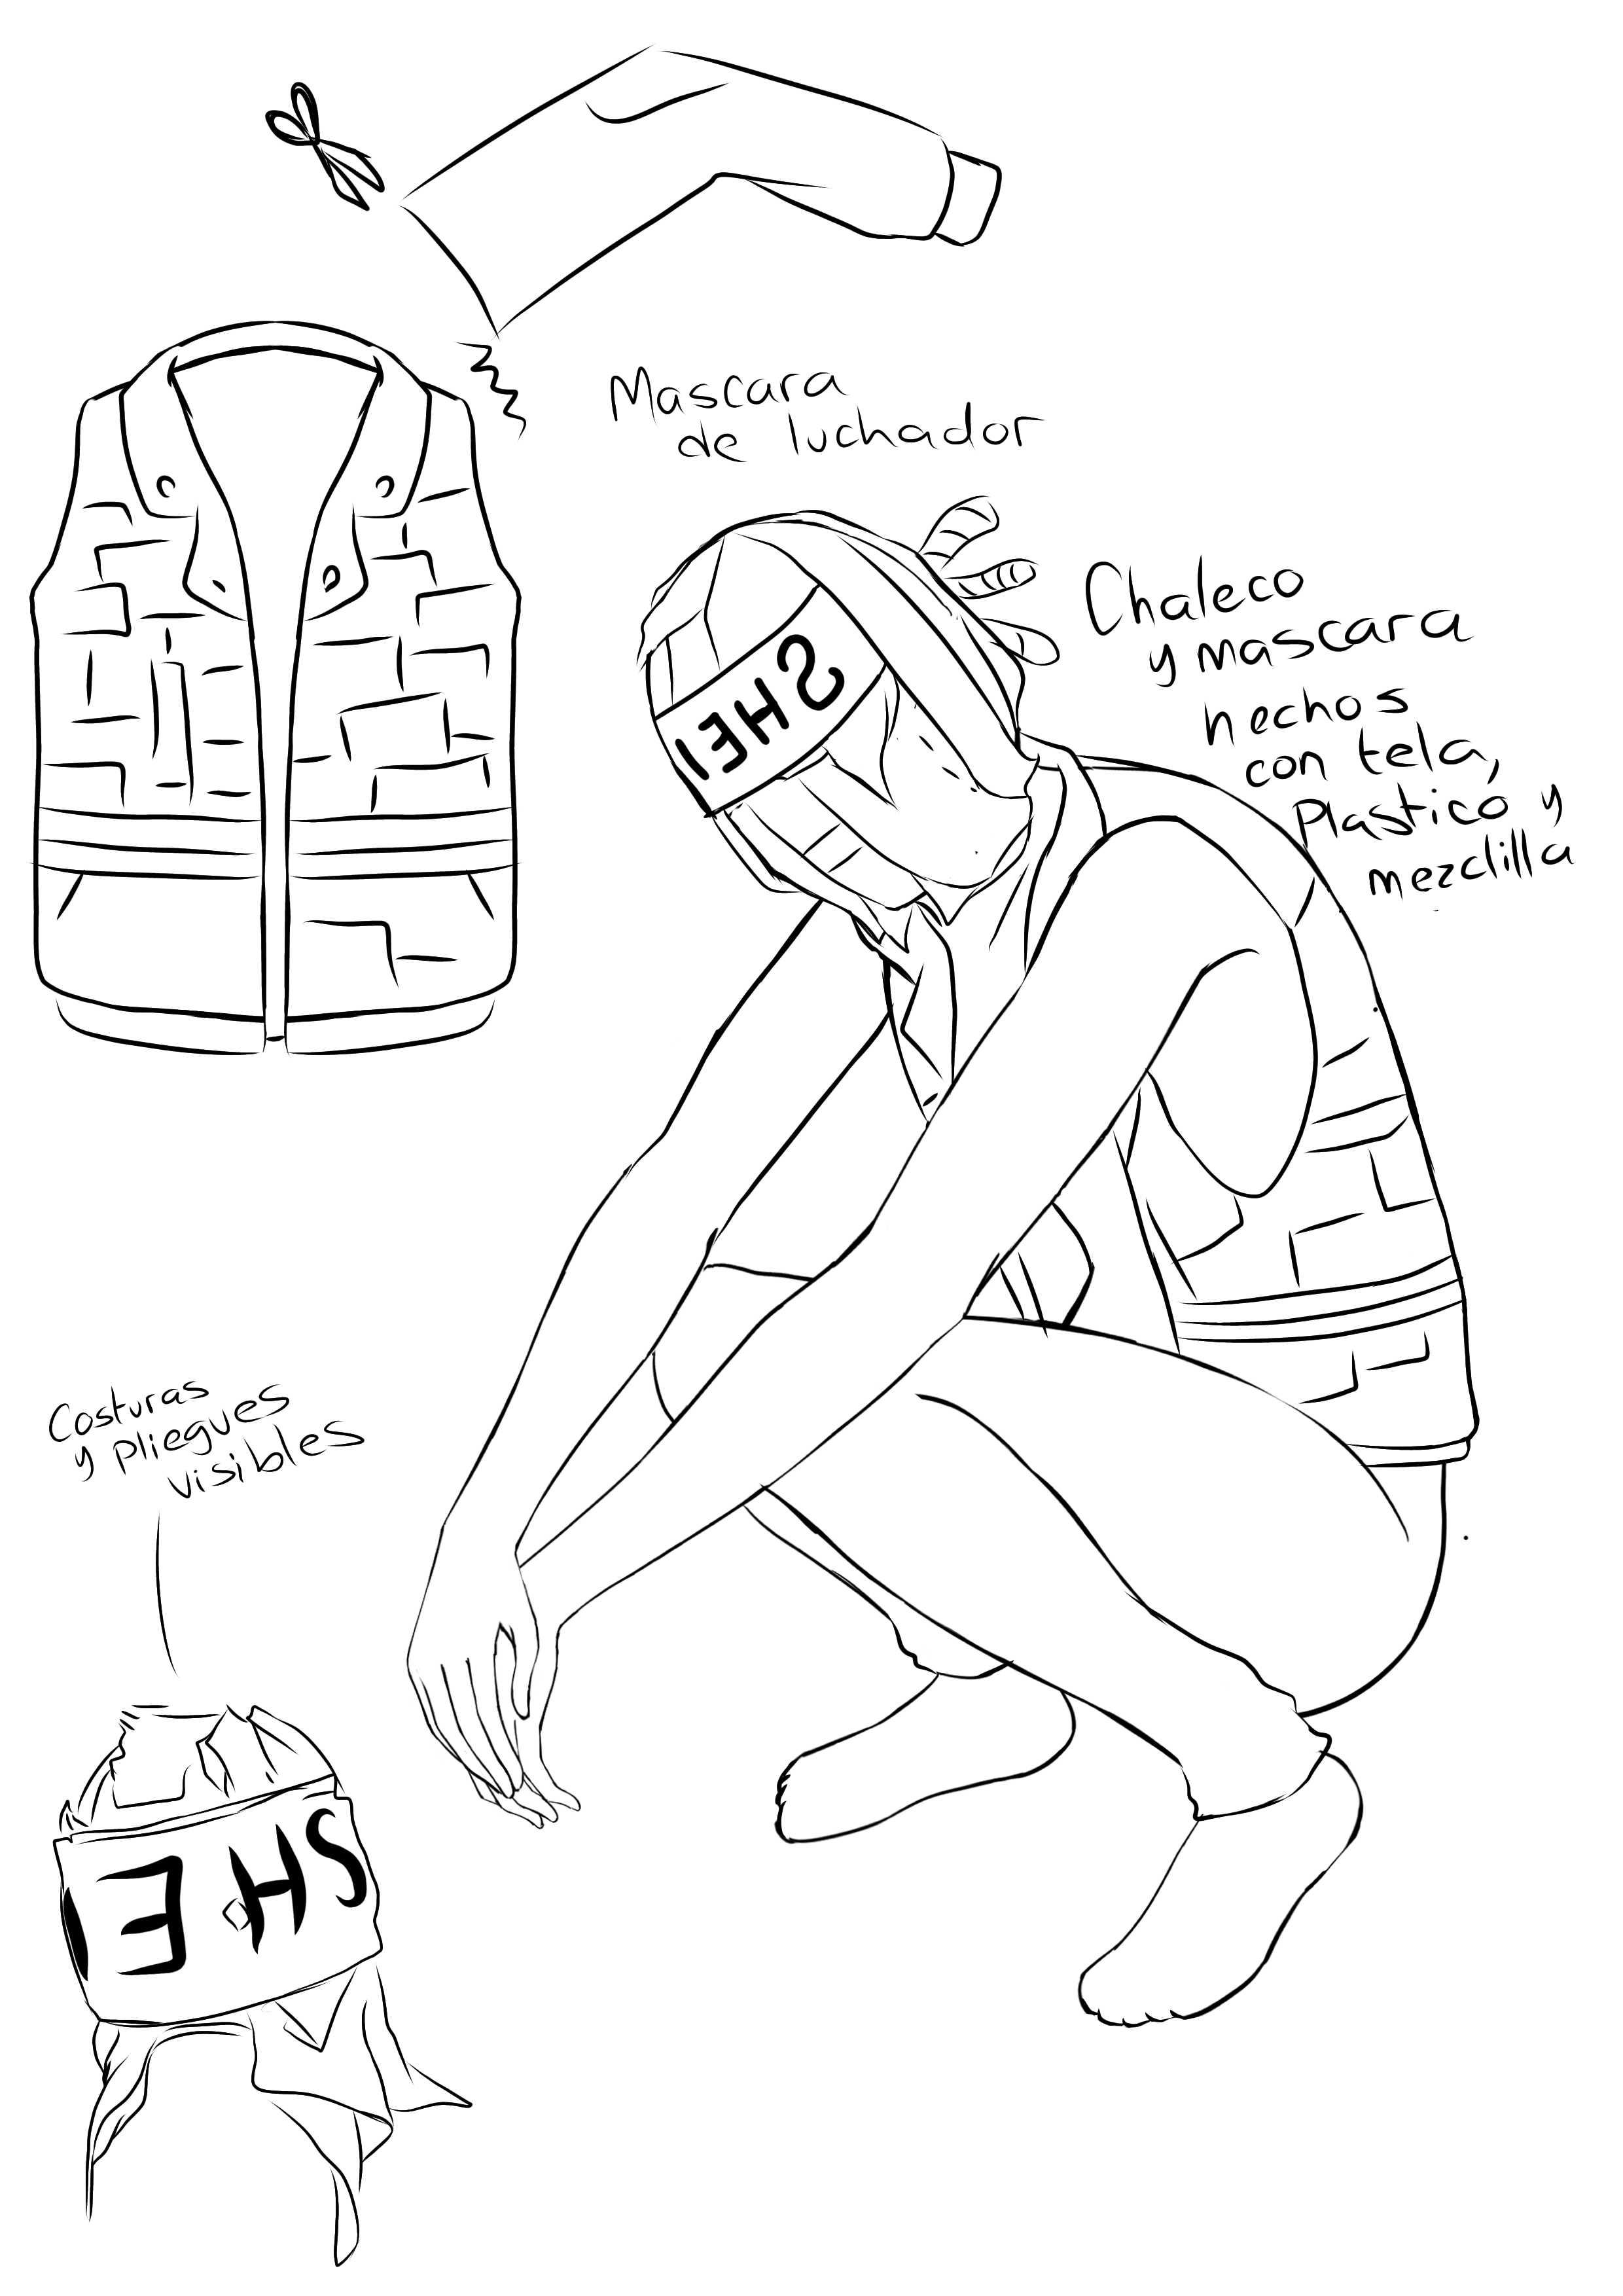 Mascara
de luchador
Chaleco
y mascara
hechos
con tela,
Plastico y
mezclilla
SHEI
Costuras
y pliegues
visibles
SHE